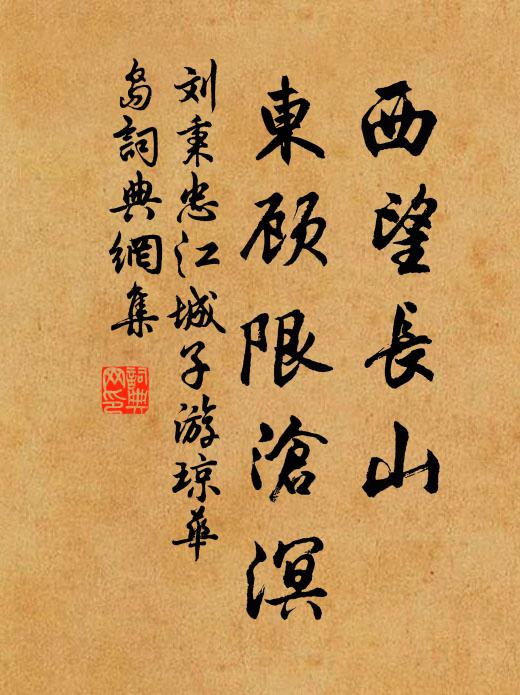 西望長山
東顾限滄溟
刘秉忠江城子游琼華
岛詞典網集
詞典網印